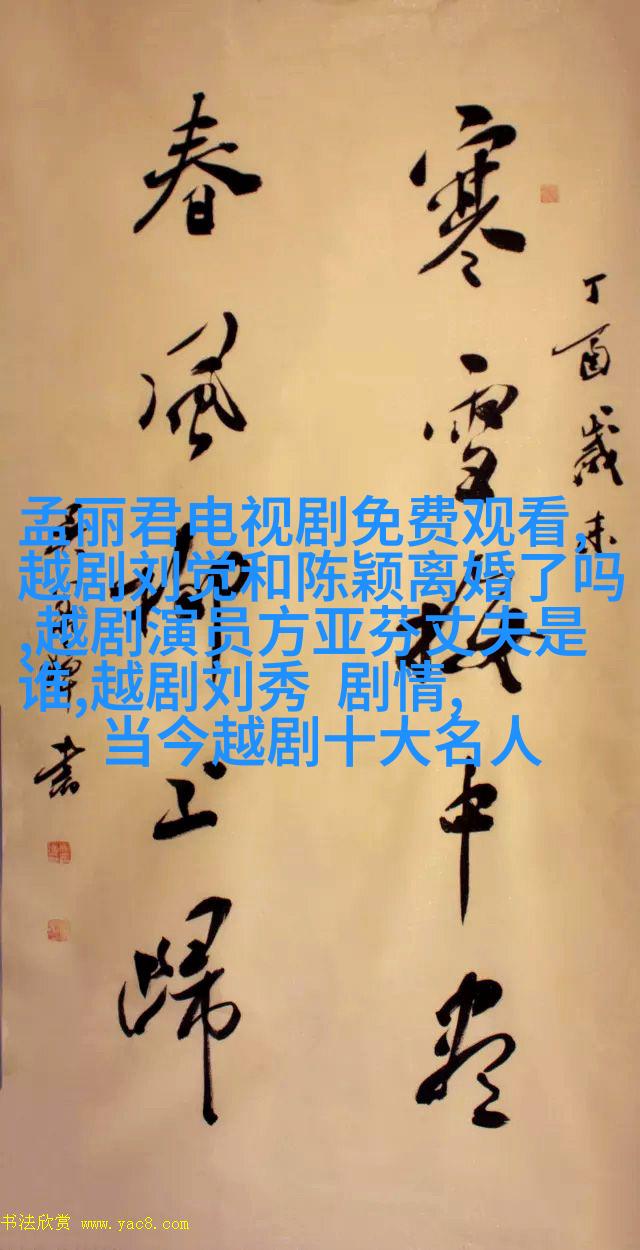 丁酉岁末
寒雪梅中尽
春风柳上归
孟丽君电视剧免费观看,
越剧刘觉和陈颖离婚了吗
,越剧演员方亚芬丈夫是
谁,越剧刘秀 剧情,
当今越剧十大名人
书法欣赏 www.yac8.com